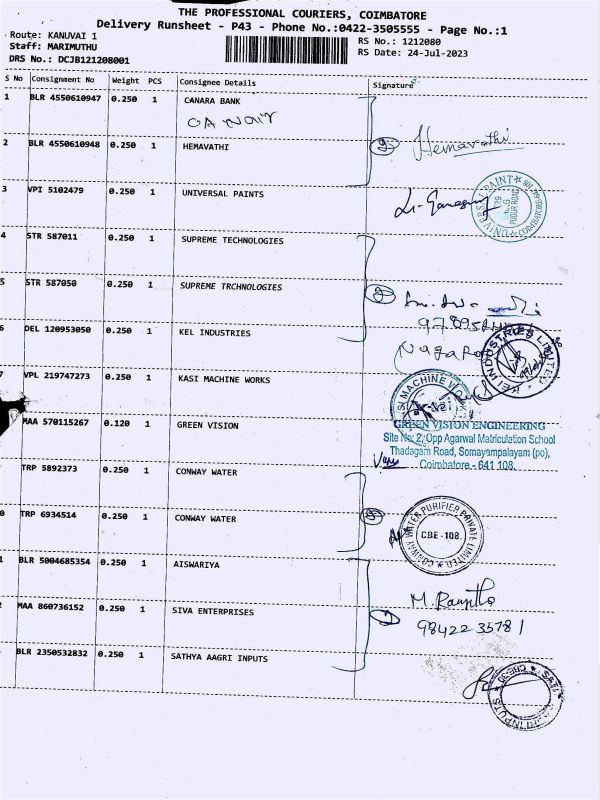 THE PROFESSIONAL COURIERS, COIMBATORE
Delivery Runsheet - P43 - Phone No.:0422-3505555 - Page No.:1
Route: KANUVAI 1
RS No.: 1212080
Staff: MARIMUTHU
RS Date: 24-Jul-2023
DRS No.: DCJB121208001
S No Consignment No Weight PCS Consignee Details Signature
1 BLR 4550610947 0.250 1 CANARA BANK
2 BLR 4550610948 0.250 1 HEMAVATHI
Hemavathi
3 VPI 5102479 0.250 1 UNIVERSAL PAINTS
4 STR 587011 0.250 1 SUPREME TECHNOLOGIES
5 STR 587050 0.250 1 SUPREME TRCHNOLOGIES
6 DEL 120953050 0.250 1 KEL INDUSTRIES
KEI INDUSTRIES LIMITED
7 VPL 219747273 0.250 1 KASI MACHINE WORKS
MAA 570115267 0.120 1 GREEN VISION
GREEN VISION ENGINEERING
Site No: 2, Opp Agarwal Matriculation School
Thadagam Road, Somayampalayam (po),
Coimbatore - 641 108.
TRP 5892373 0.250 1 CONWAY WATER
0 TRP 6934514 0.250 1 CONWAY WATER
CONWAY WATER PURIFIER PRIVATE LIMITED
CBE -108.
1 BLR 5004685354 0.250 1 AISWARIYA
2 MAA 860736152 0.250 1 SIVA ENTERPRISES
98422 35781
BLR 2350532832 0.250 1 SATHYA AAGRI INPUTS